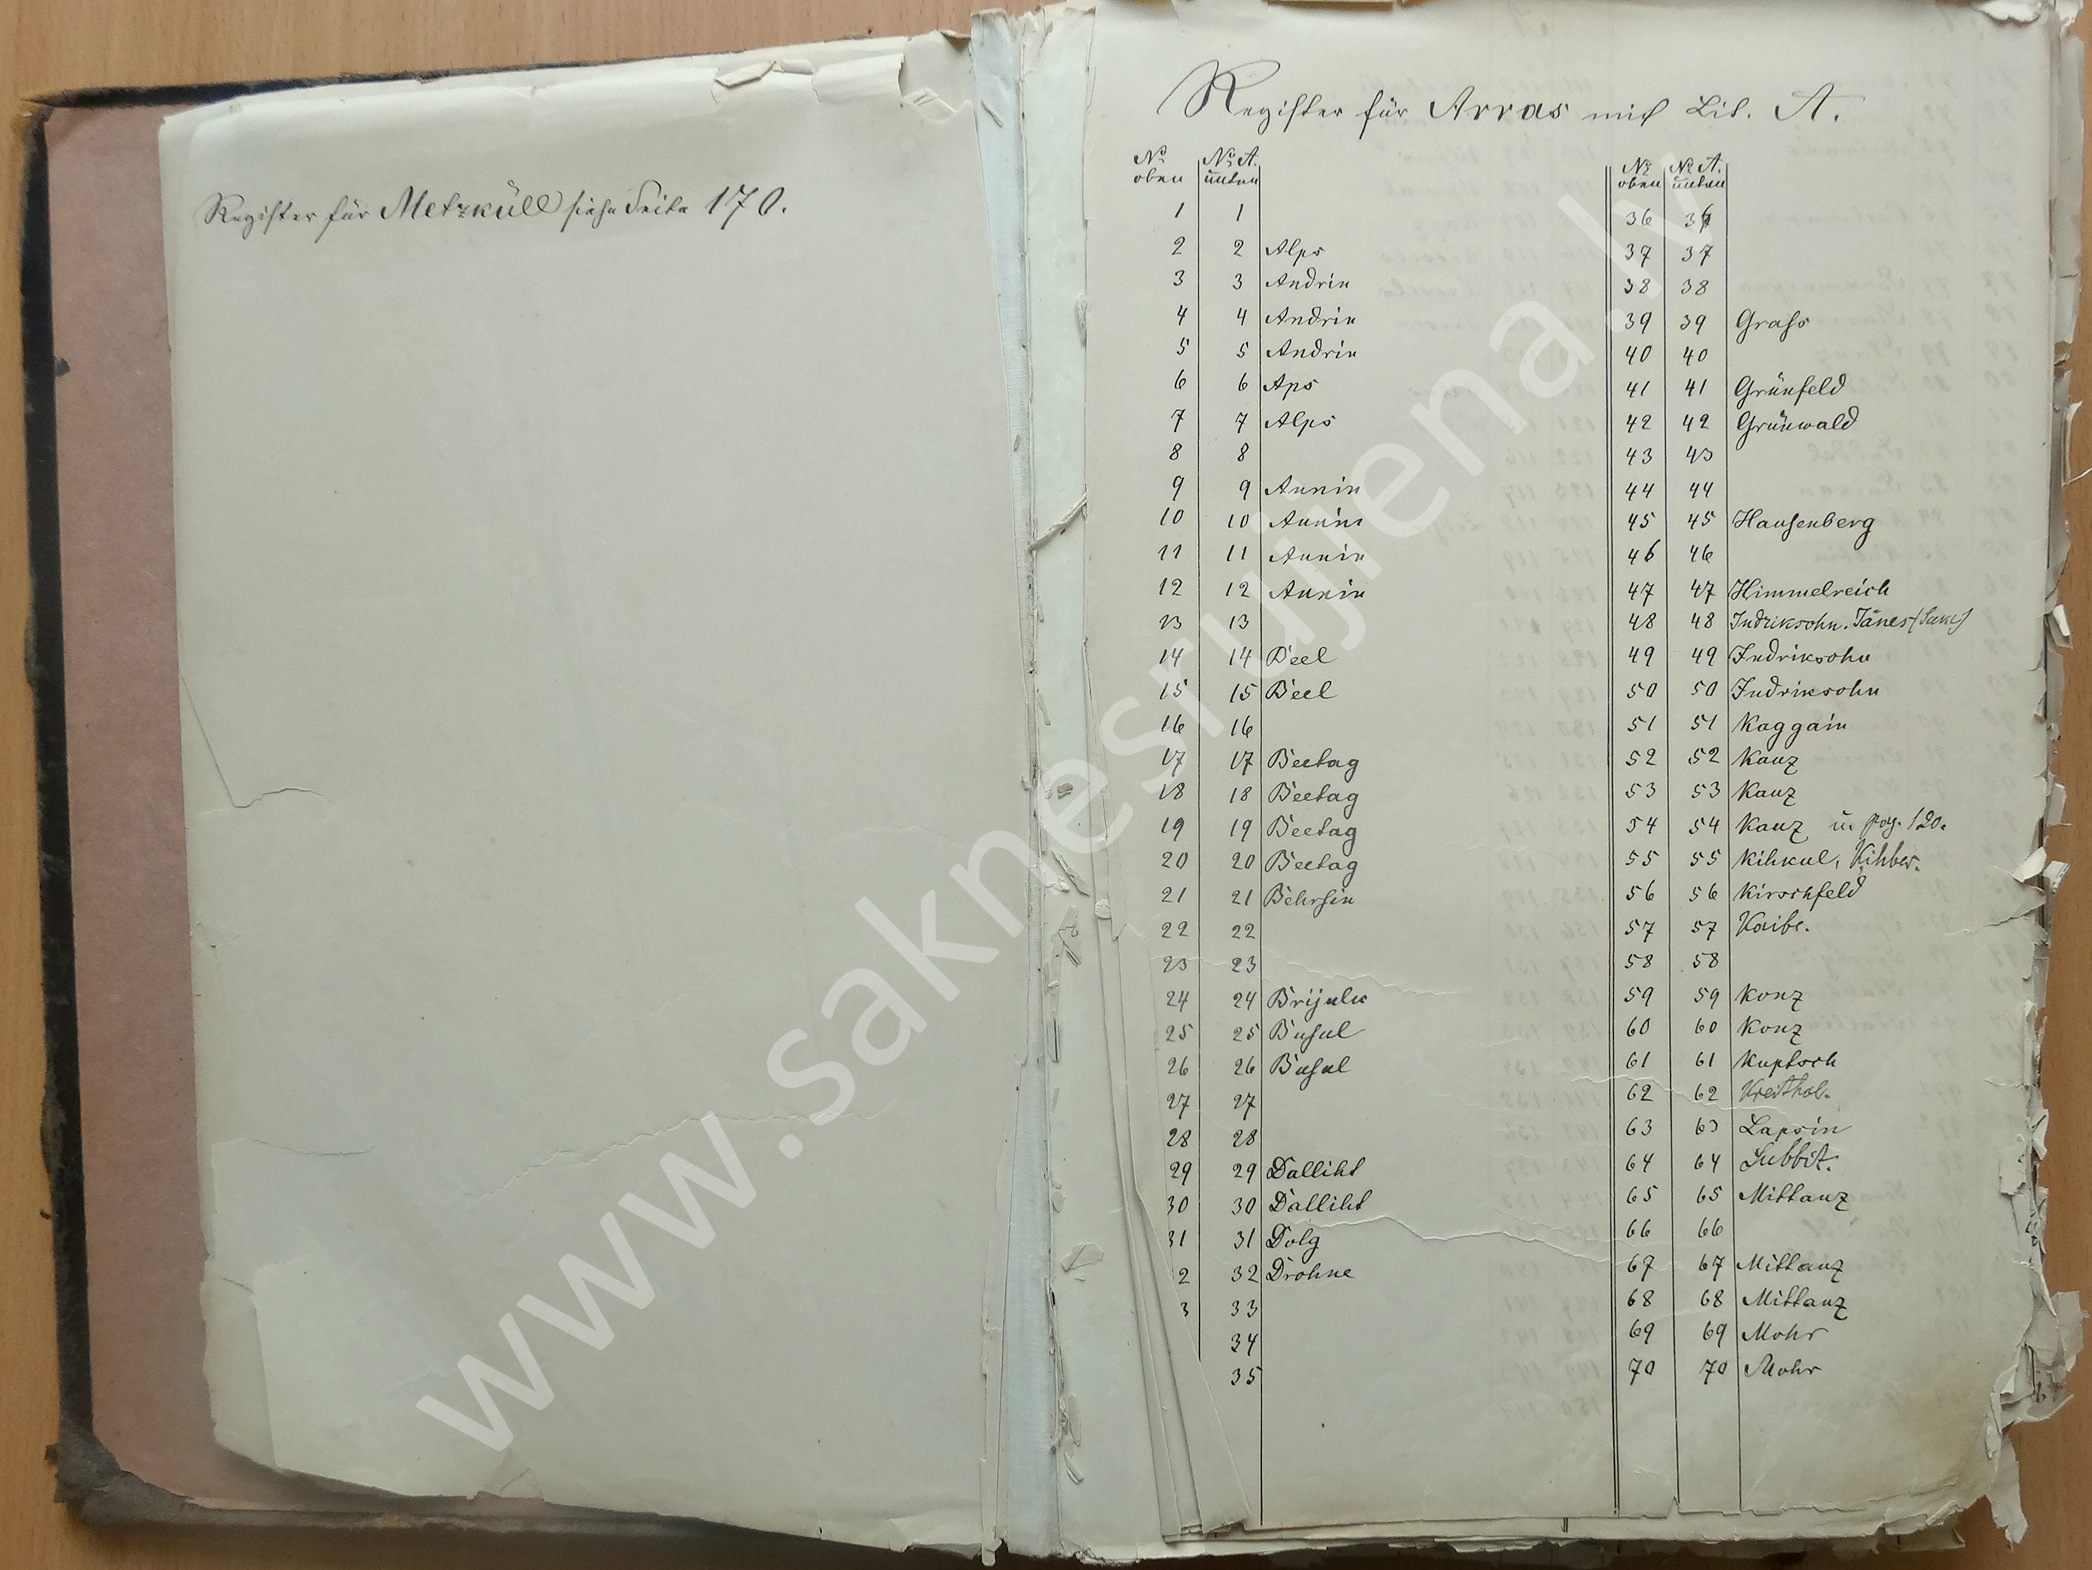 Register für Metzküll siehe Seite 170.
Register für Arras mit Lit. A.
No oben No A. unten
1 1
2 2 Alps
3 3 Andrin
4 4 Andrin
5 5 Andrin
6 6 Aps
7 7 Alps
8 8
9 9 Annin
10 10 Annin
11 11 Annin
12 12 Annin
13 13
14 14 Beel
15 15 Beel
16 16
17 17 Beetag
18 18 Beetag
19 19 Beetag
20 20 Beetag
21 21 Behrsin
22 22
23 23
24 24 Brijule
25 25 Busul
26 26 Busul
27 27
28 28
29 29 Dalliht
30 30 Dalliht
31 31 Dolg
2 32 Drohne
3 33
34
35
No oben No A. unten
36 36
37 37
38 38
39 39 Grass
40 40
41 41 Grünfeld
42 42 Grünwald
43 43
44 44
45 45 Hausenberg
46 46
47 47 Himmelreich
48 48 Indriksohn. Jānes
49 49 Indriksohn
50 50 Indriksohn
51 51 Kaggain
52 52 Kanz
53 53 Kanz
54 54 Kanz u. pag. 120.
55 55 Kihkul, Kihber.
56 56 Kirschfeld
57 57 Kaibe.
58 58
59 59 Konz
60 60 Konz
61 61 Kuptsch
62 62 Kreithol.
63 63 Lapsin
64 64 Lubbit.
65 65 Mittanz
66 66
67 67 Mittanz
68 68 Mittanz
69 69 Mohr
70 70 Mohr
www.saknesrujiena.lv